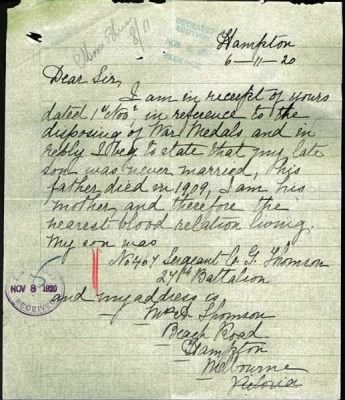 8/11
Hampton
6-11-20
Dear Sir,
I am in receipt of yours
dated 1st Nov in reference to the
disposing of War Medals and in
reply I beg to state that my late
son was never married, his
father died in 1909, I am his
mother and therefore the
nearest blood relation living.
My son was
No 467 Sergeant C. G. Thomson
27th Battalion
and my address is
NOV 8 1920
RECEIVED
Thomson
Beach Road
Hampton
Melbourne
Victoria